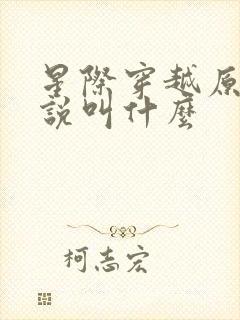 星際穿越原
說叫什麼
柯志宏